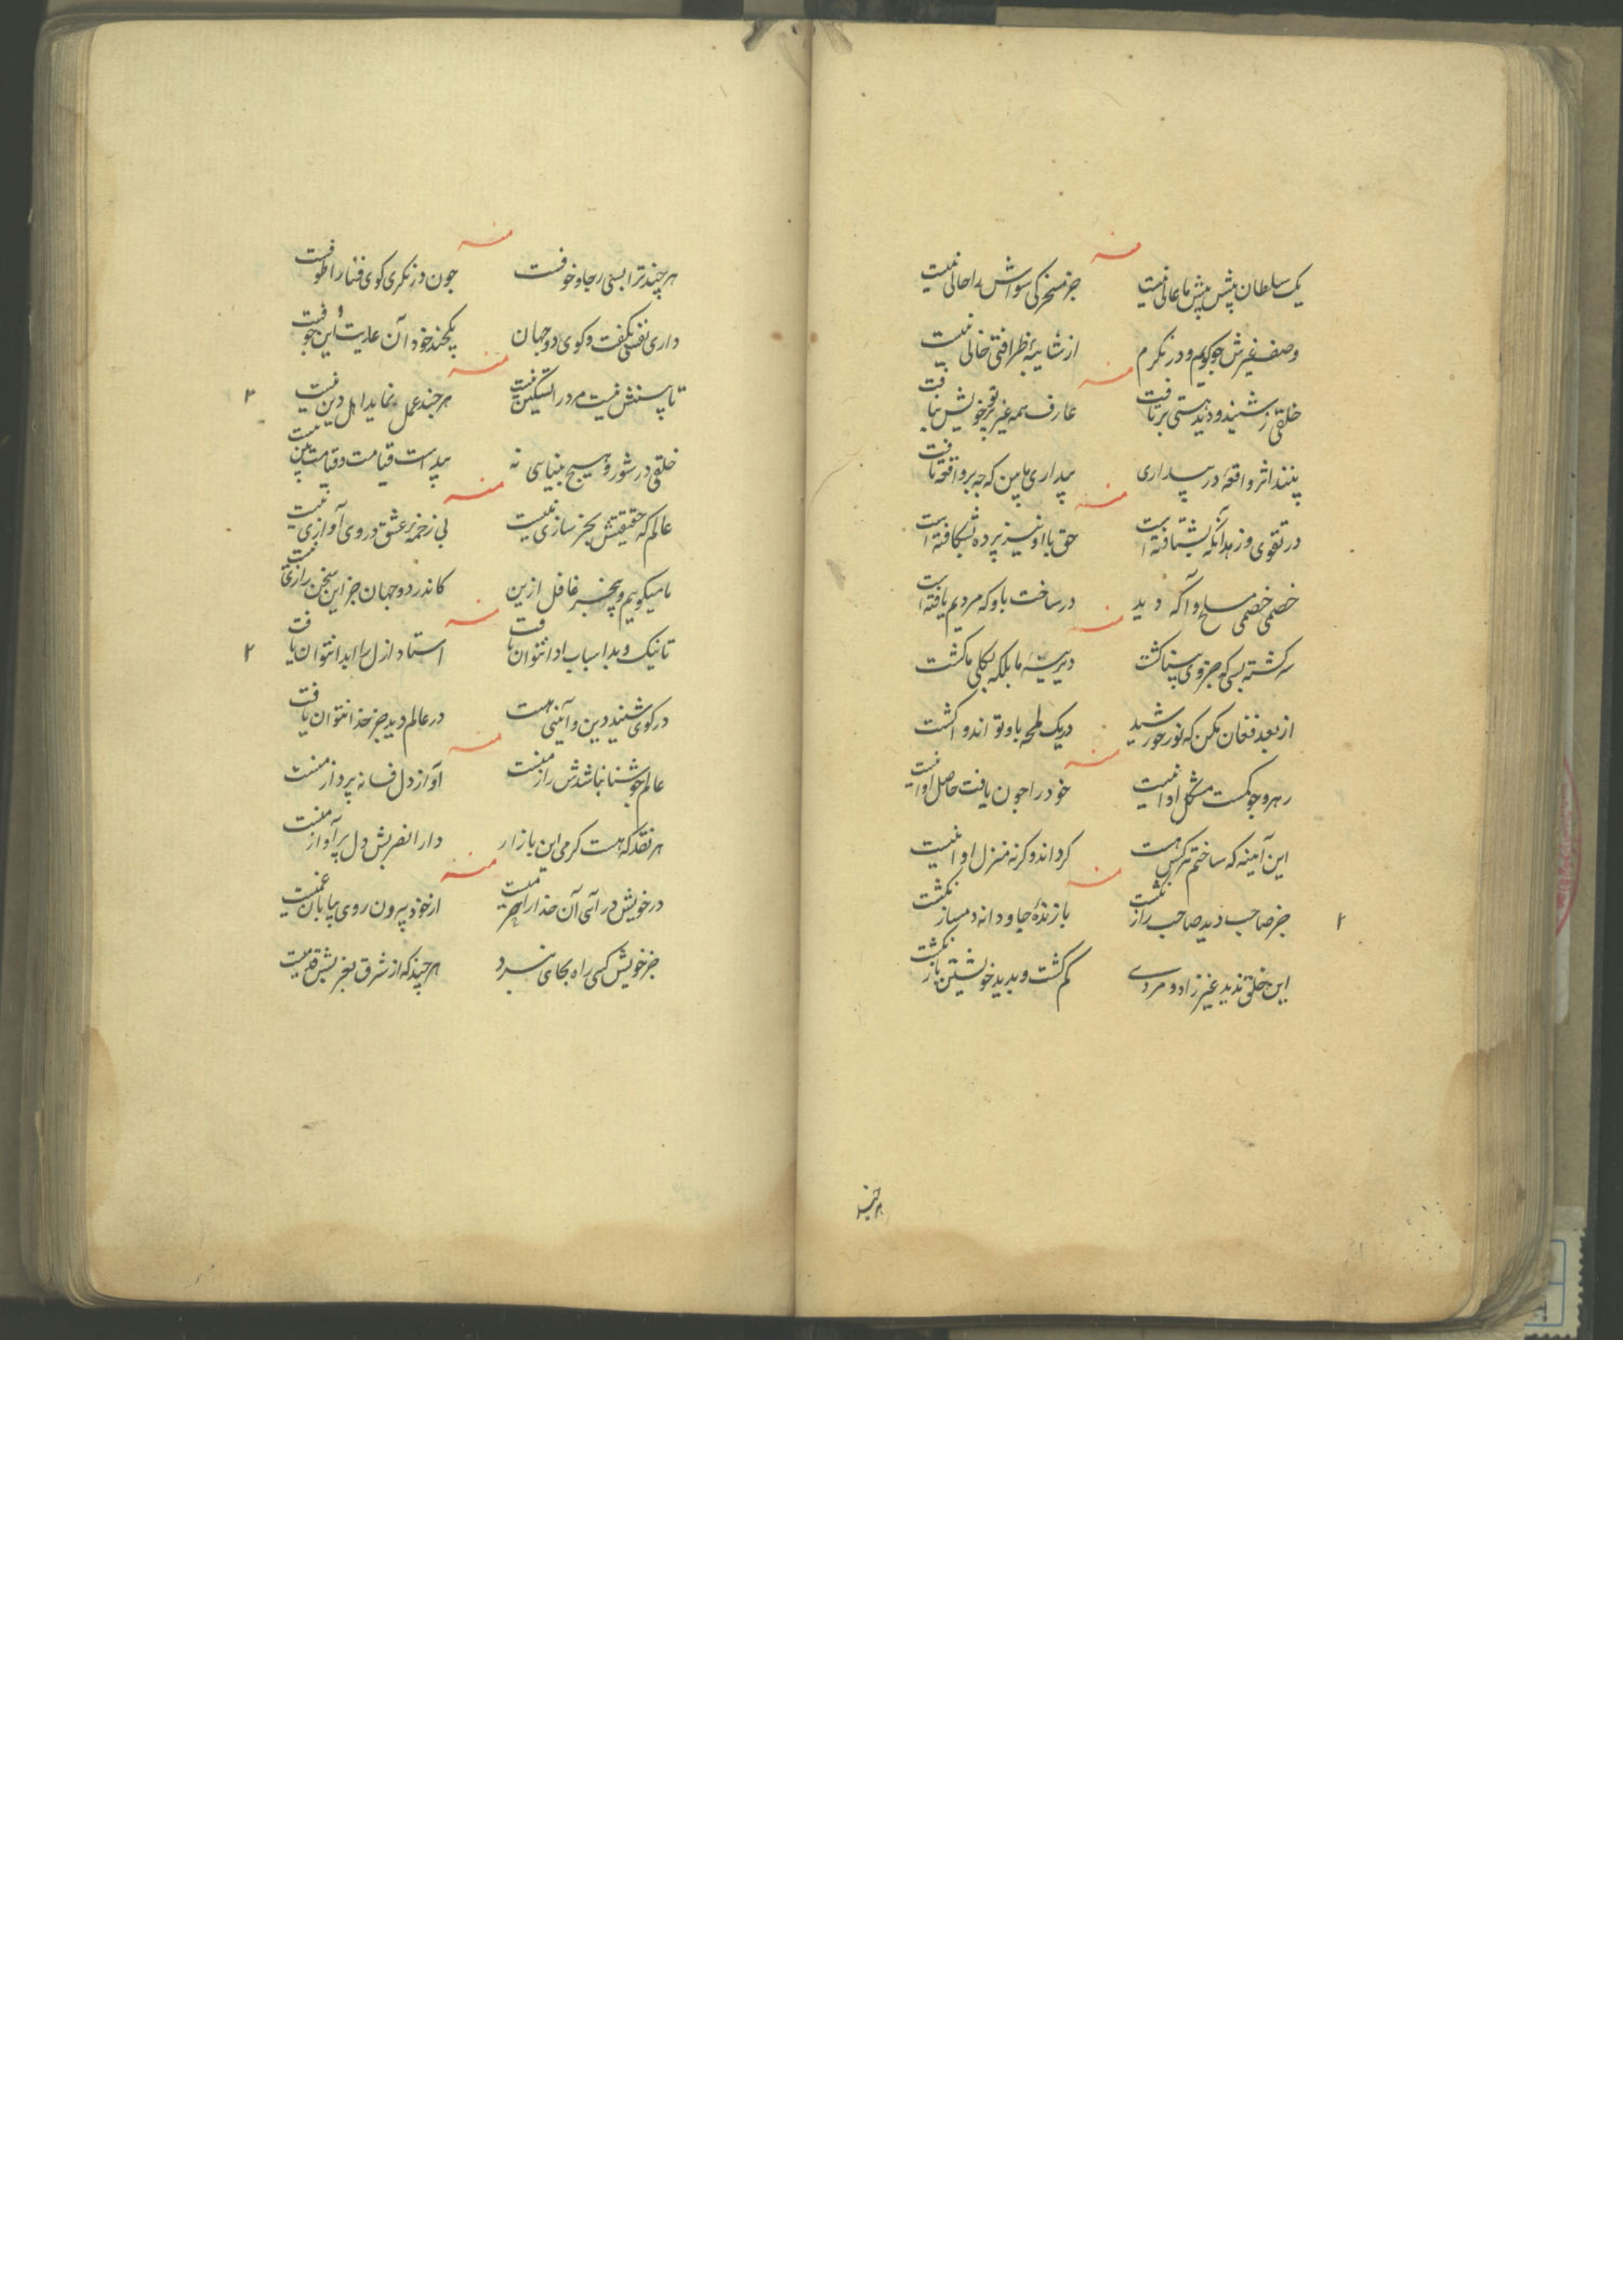 منه
یک سلطان پیش پیش ما عالی نیست جز مسخرکی سواش را حالی نیست
وصف غیرش جو کویم و در نکرم از شایبهٔ ظرافتی خالی نیست
منه
خلقی ز شنید و دید هستی بر تافت عارف همه غیر پرتو خویش نیافت
بینند اثر واقعهٔ در بیداری بیداری ما بین که چه بر واقعه تافت
منه
در تقوی و زهد آنکه بشتافته است حق با او نیز پرده بشکافته است
خصمی خصمی مسلح و آکه دید در ساخت باو که مردیم یافته است
منه
سرکشته بسی که جزوی پیدا کشت دیرینهٔ ما بلکه بکلی ما کشت
از بعد فغان مکن که نور خورشید در یک لمحه باوتو اند وا کشت
منه
رهرو جو کمست مشکل او آنست خود را جون یافت حاصل او آنست
این آینه که ساختم هر کس هست کرداند و کرنه منزل او آنست
منه
جز صاحب دید صاحب راز نکشت با زندهٔ جاودانه دمساز نکشت
۲
این خلق ندید غیر زاد و مردی کم کشت و بدید خویشتن باز نکشت
هرچند
منه
هرچند ترا بسی رجا و خوفست جون در نکری کوی فنا را طوفست
داری نفسی نکفت و کوی دو جهان یکچند خود آن عاریت و این جوفست
منه
تا پستش نیست مرد را تسکین نیست هرچند عمل نماید اهل دین نیست
۳
خلقی در شور و هیچ بینایی نه پیداست قیامت و قیامت بین نیست
منه
عالم که حقیقتش بجز سازی نیست بی زخمهٔ عشق در وی آوازی نیست
ما میکوییم و بیخبر غافل ازین کاندر دو جهان جز این سخن رازی نیست
منه
تا نیک و بد اسباب ادا نتوان یافت استاد ازل را ابدا نتوان یافت
۲
در کوی شنید دین و آیینی هست در عالم دید جز خدا نتوان یافت
منه
عالم جو شناخاشدش راز منست آواز دل فسانه پرداز منست
هر نقد که هست کرمی این بازار دار الضربش دل پر آواز منست
منه
در خویش در آی آن خدا را حرمیست از خود بیرون روی بیابان غمیست
جز خویش کسی راه بجای نبرد هرچند که از شرق بغربش قدمیست